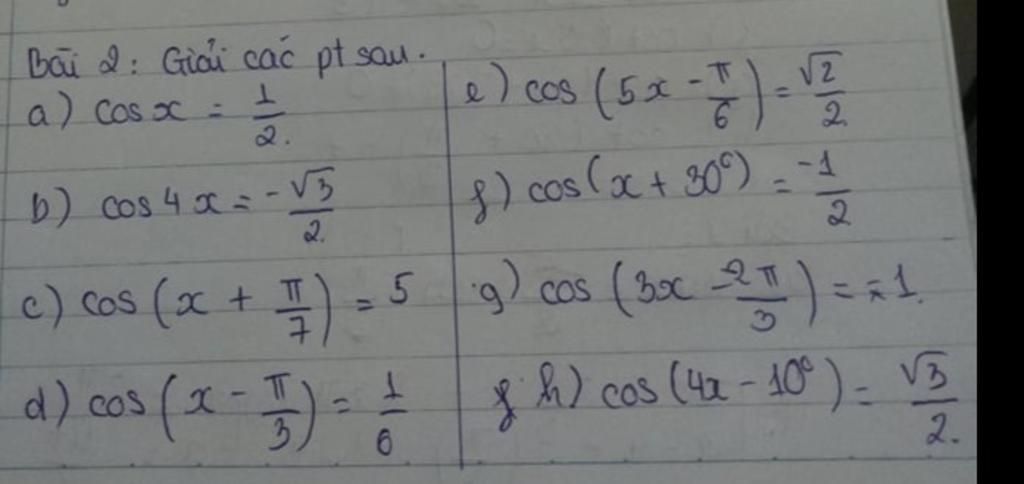 Bài 2: Giải các pt sau.
a) cos x = 1/2.
b) cos 4x = -√3/2
c) cos (x + π/7) = 5
d) cos (x - π/3) = 1/6
e) cos (5x - π/6) = √2/2
f) cos (x + 30°) = -1/2
g) cos (3x - 2π/3) = -1.
h) cos (4x - 10°) = √3/2.